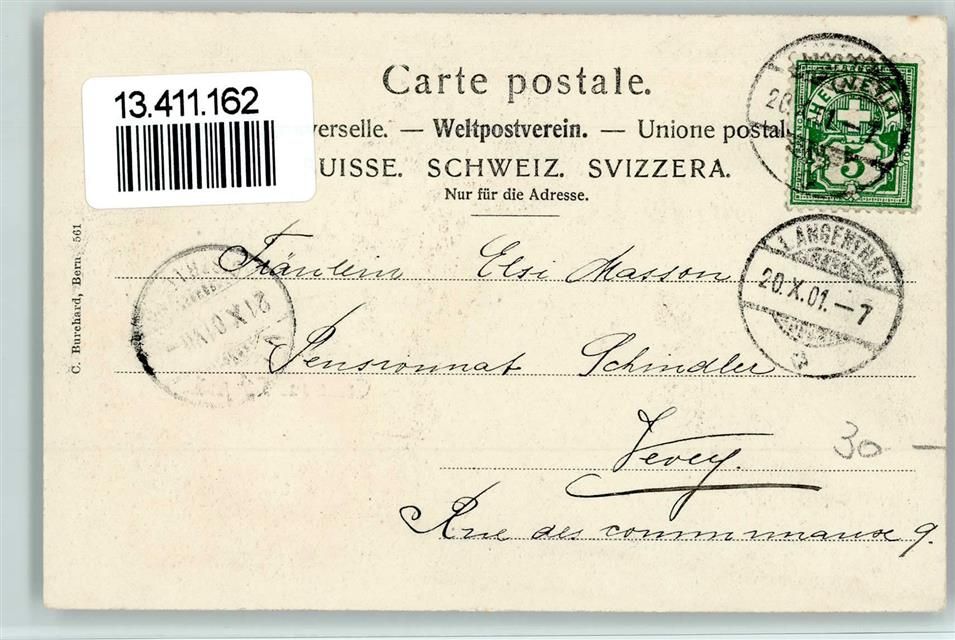 13.411.162
Carte postale.
verselle. — Weltpostverein. — Unione postal
UISSE. SCHWEIZ. SVIZZERA.
Nur für die Adresse.
HELVETIA
5
LANGENTHAL
20.X.01.–7
Fräulein Elsi Masson
21.X.01
Pensionnat Schindler
Vevey.
30 —
Rue des communaux 9.
C. Burchard, Bern 561